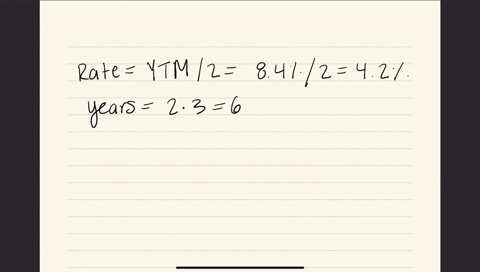 Rate = YTM / 2 = 8.4% / 2 = 4.2%
years = 2 · 3 = 6